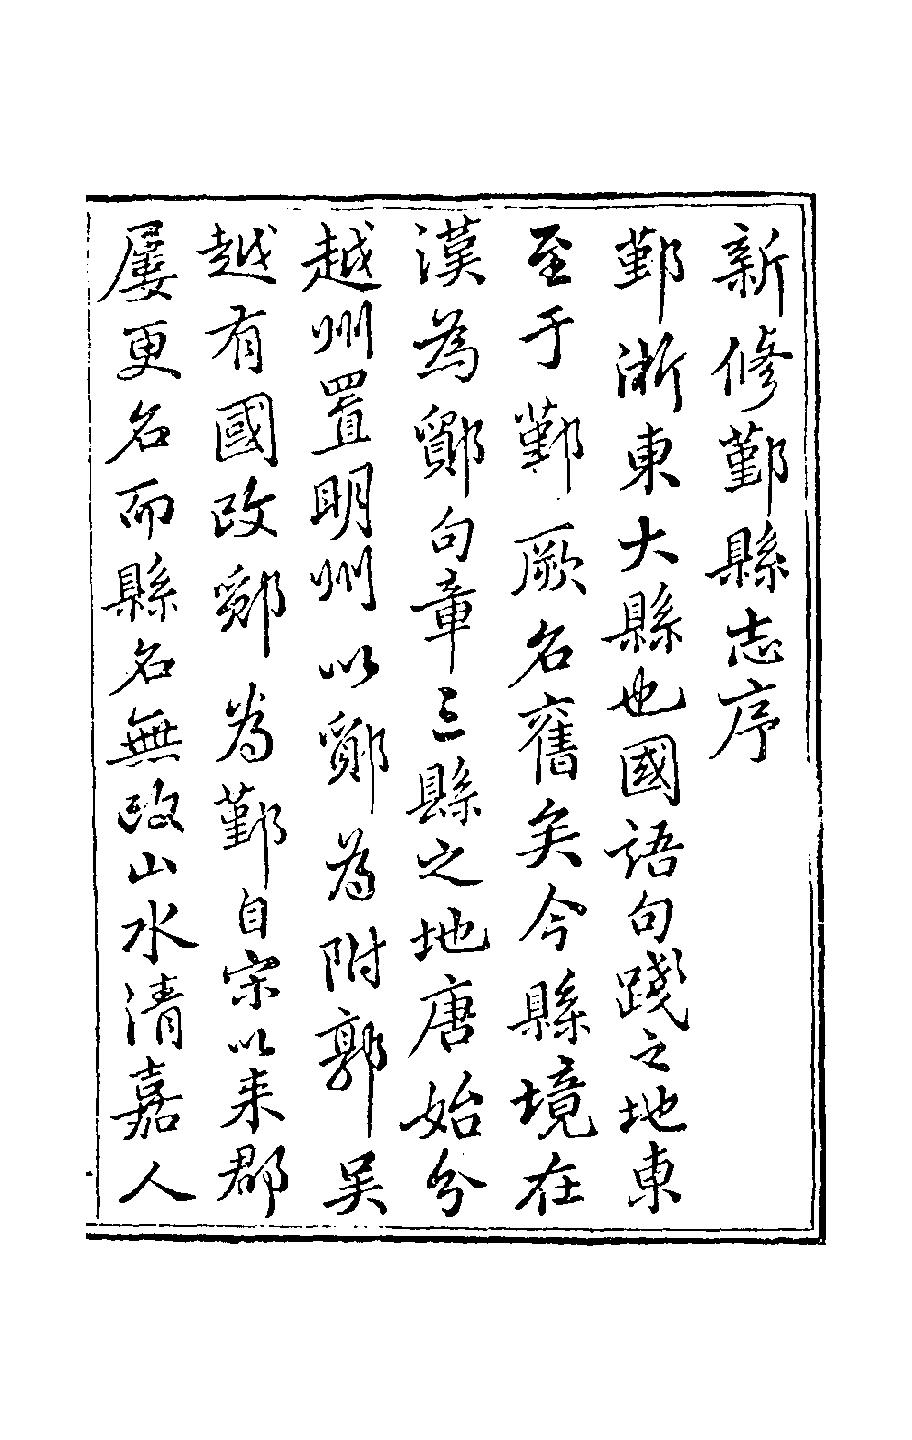 新修鄞縣志序
鄞浙東大縣也國語句踐之地東
至于鄞厥名舊矣今縣境在
漢為鄮句章三縣之地唐始分
越州置明州以鄮為附郭吳
越有國改鄮為鄞自宋以来郡
屢更名而縣名無改山水清嘉人